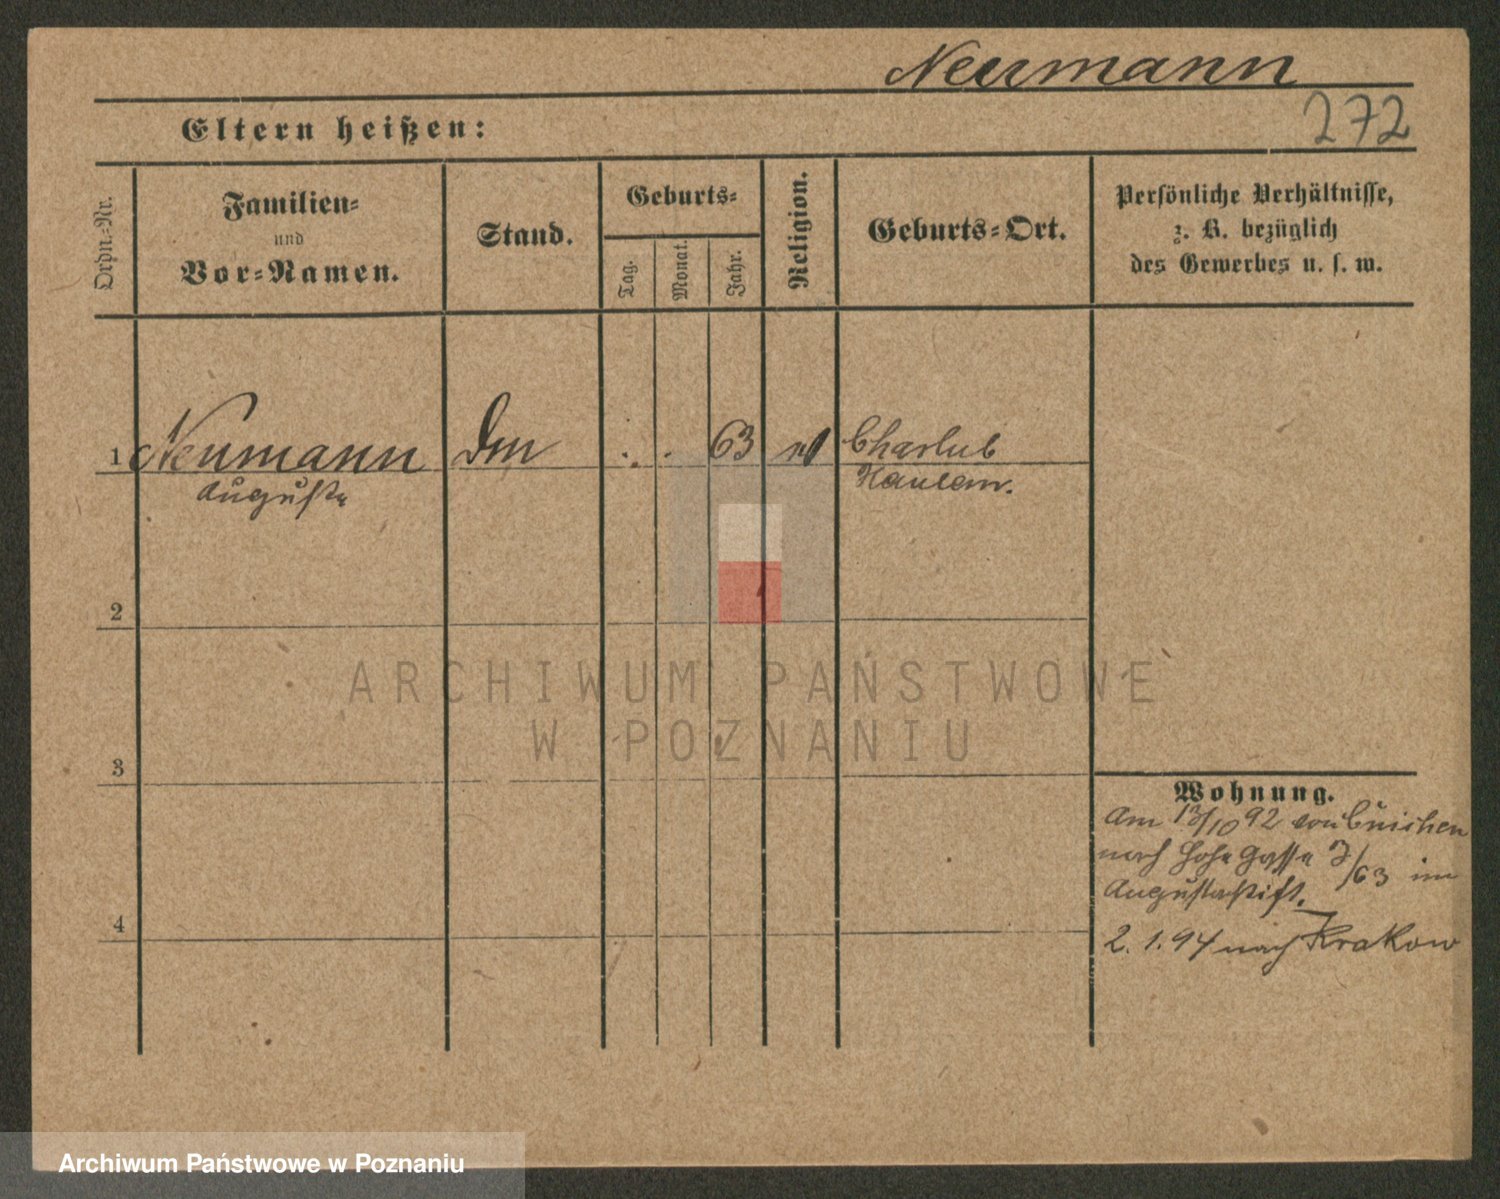 Neumann
272
Eltern heißen:
Ordn.-Nr.
Familien-
und
Vor-Namen.
Stand.
Geburts-
Tag.
Monat.
Jahr.
Religion.
Geburts-Ort.
Persönliche Verhältnisse,
z. B. bezüglich
des Gewerbes u. s. w.
1 Neumann 63 Charlub
Auguste Hauland.
2
3
4
Wohnung.
Am 13/10 92 von
nach Hohe Gasse 3/63 im
Augustastift.
2. 1. 94 nach Krakow
ARCHIWUM PAŃSTWOWE
W POZNANIU
Archiwum Państwowe w Poznaniu